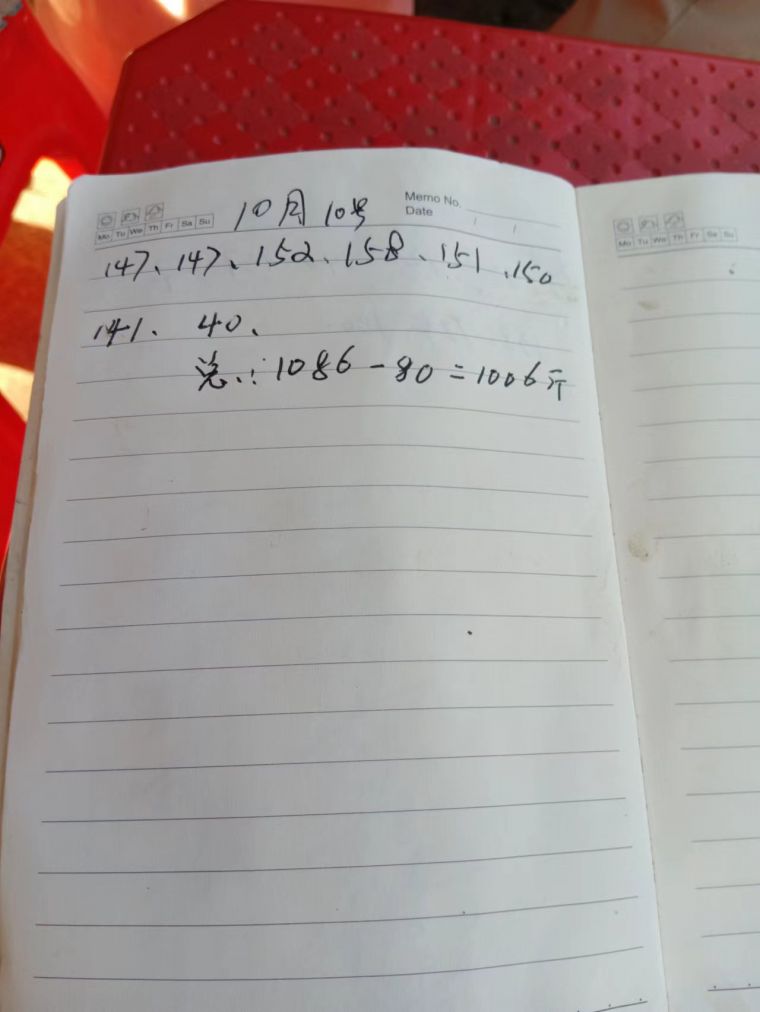 10月10号
Memo No.
Date / /
Mo Tu We Th Fr Sa Su
147、147、152、158、151、150
141、 40、
总:1086-80=1006斤
Mo Tu We Th Fr Sa Su